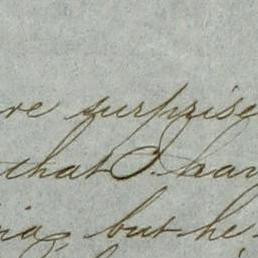 re surprise
that I hav
ia, but he